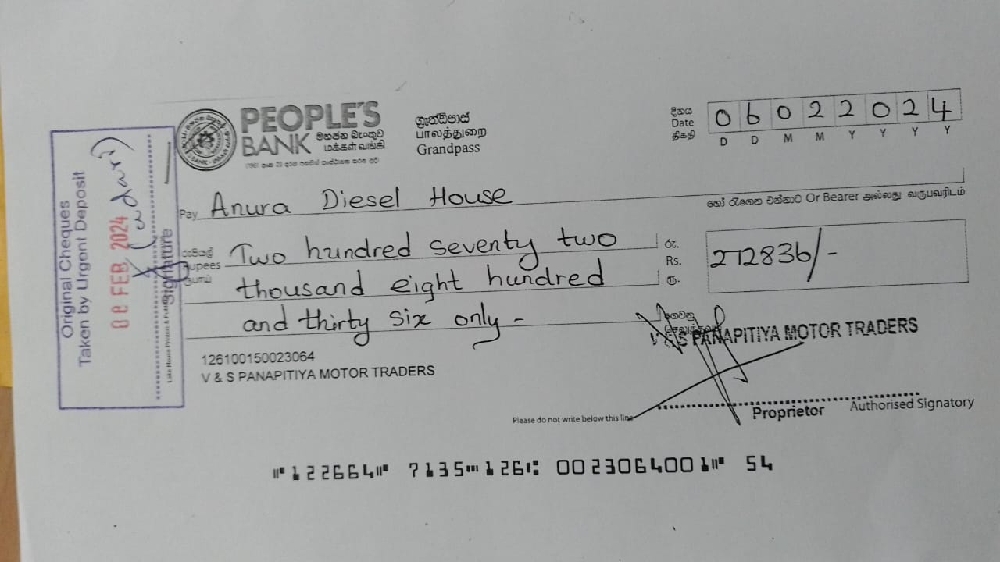 Original Cheques
Taken by Urgent Deposit
08 FEB 2024
Signature
PEOPLE'S
BANK
මහජන බැංකුව
மக்கள் வங்கி
ග්‍රෑන්ඩ්පාස්
பாலத்துறை
Grandpass
දිනය
Date
திகதி
0 6 0 2 2 0 2 4
D D M M Y Y Y Y
Pay Anura Diesel House
හෝ රැගෙන එන්නාට Or Bearer அல்லது வருபவரிடம்
රුපියල්
Rupees
ரூபாய்
Two hundred seventy two
thousand eight hundred
and thirty six only -
රු.
Rs.
ரூ.
272836/-
126100150023064
V & S PANAPITIYA MOTOR TRADERS
V & S PANAPITIYA MOTOR TRADERS
Proprietor
Authorised Signatory
Please do not write below this line
⑈122664⑈ 7135⑉126⑆ 0023064001⑈ 54